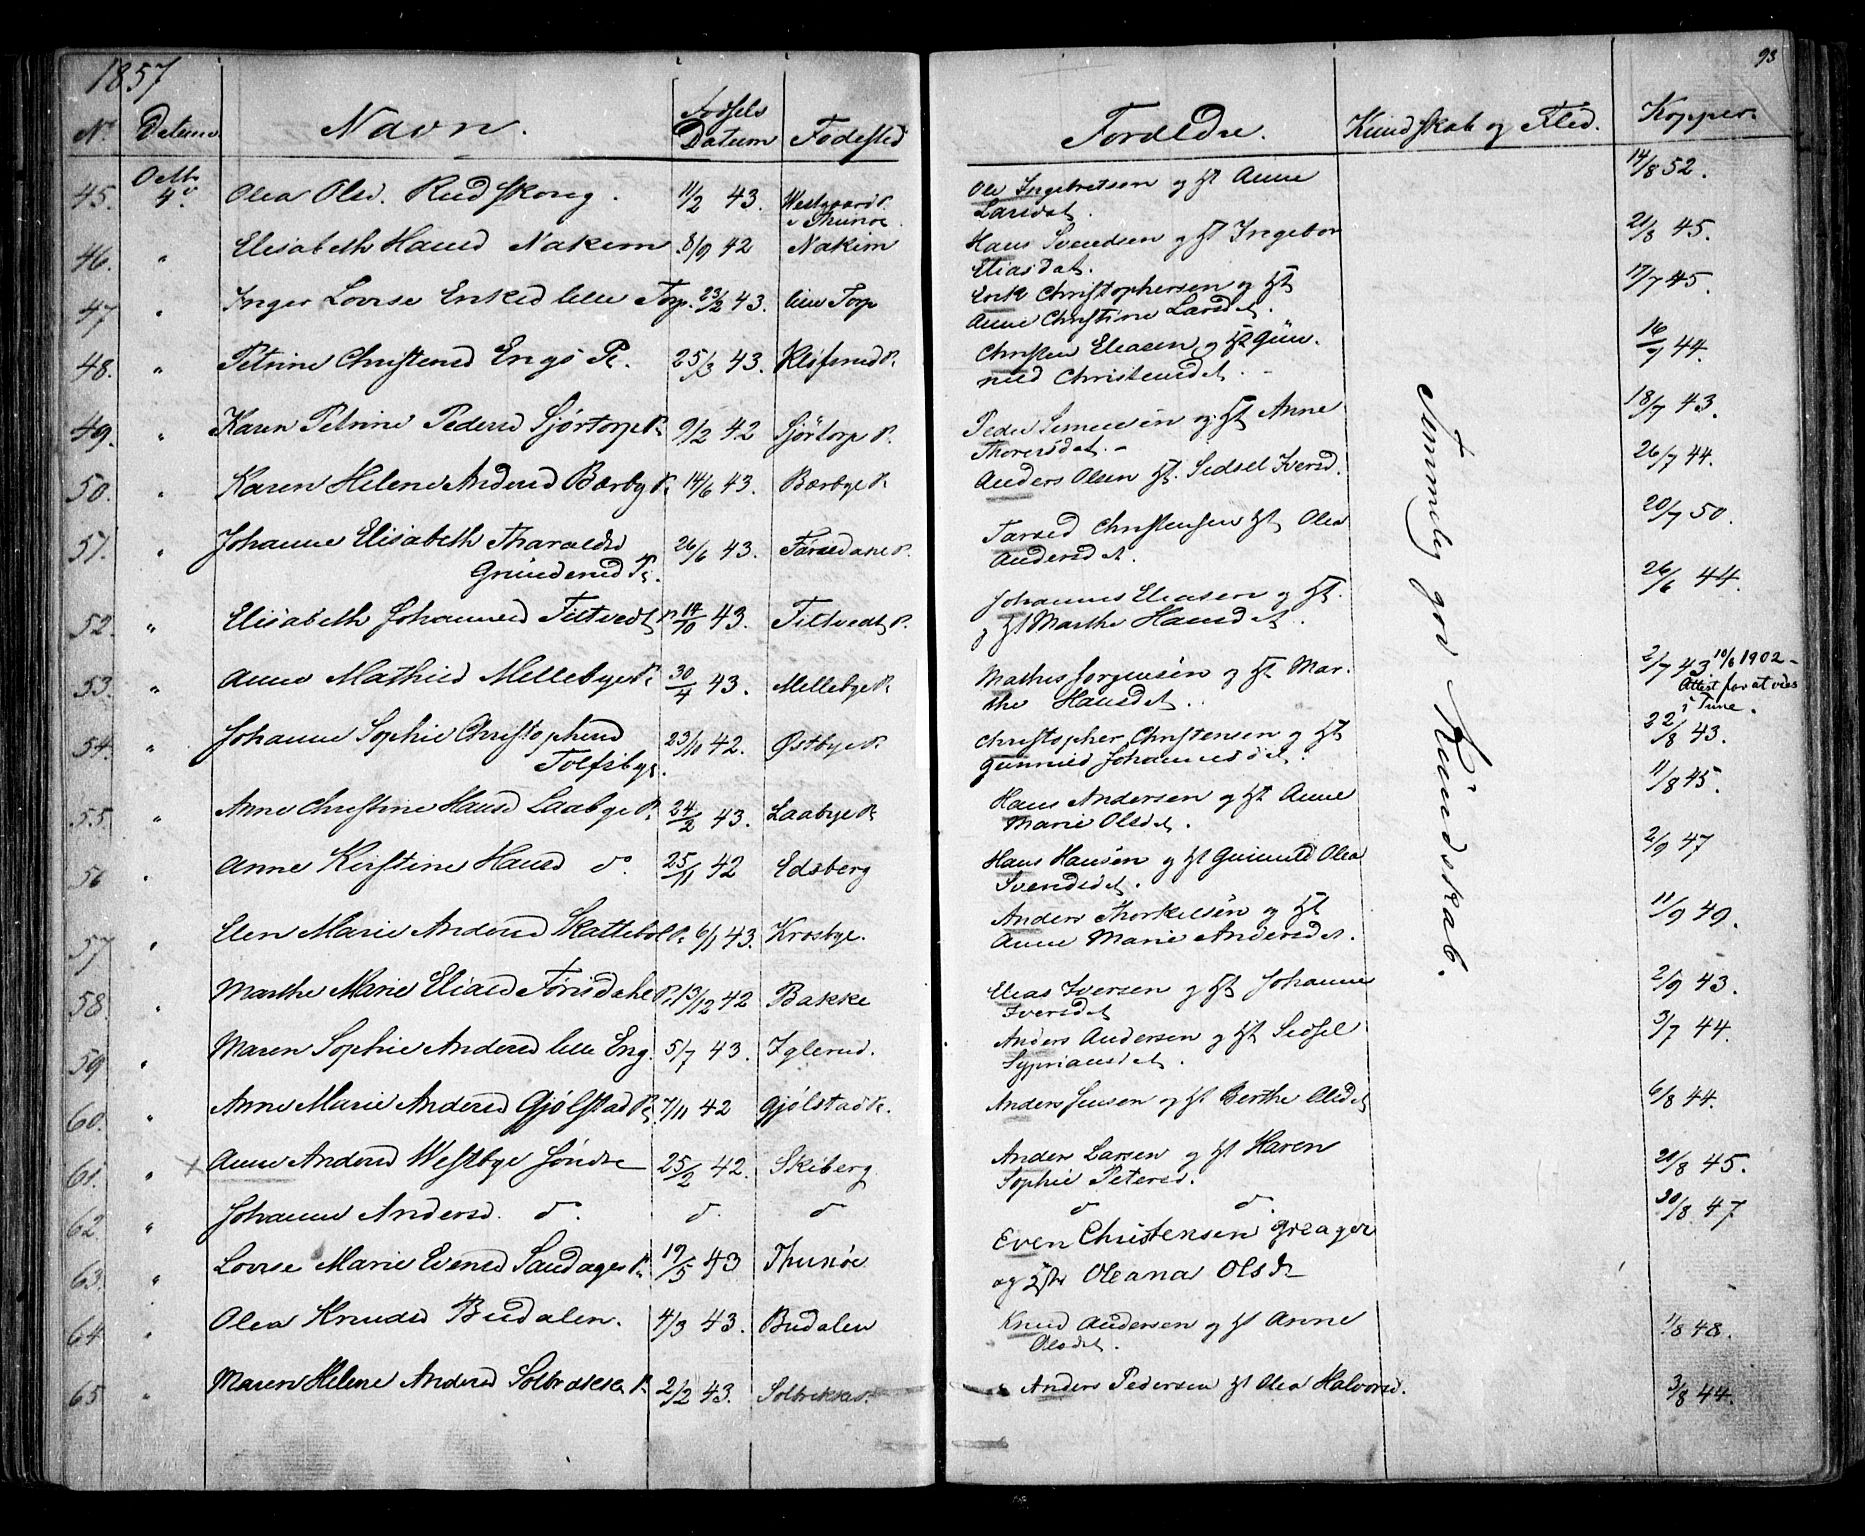 1857
93
Nr. Datum Navn. Fødsels Datum Fødested Foreldre. Kundskab og Flid. Kopper.
Octbr
45. 4de Olea Olsd. Rudskoug. 11/2 43. Westgaard P. v Thunøe Ole Ingebretsen og H Anne Larsdat. 14/8 52.
46. " Elisabeth Hansd Nakim 8/9 42 Nakim Hans Svendsen og H Ingebor Eliasdat. 21/8 45.
47 " Inger Lovise Eriksd lille Torp. 23/2 43. lille Torp Erik Christophersen og H Anne Christine Larsdet. 17/7 45.
48. " Petrine Christensd Engs P. 25/3 43. Kløfsrud P. Christen Eliasen og H Gunnild Christensdet. 16/7 44.
49. " Karen Petrine Pedersd Sjørtorp P. 9/2 42 Sjørtorp P. Peder Simensen og H Anne Thoresdet. 18/7 43.
50. " Karen Helene Andersd Bærby P. 14/6 43. Bærbye P. Anders Olsen H. Sidsel Iversd. 26/7 44.
51. " Johanne Elisabeth Tharaldsd Grimderud P. 26/6 43. Christensen H Olea Andersdet. 20/7 50.
52. " Elisabeth Johannesd Filtvedt P. 14/10 43. Filtvedt P. Johannes Eleasen og H. og H Marthe Hansdet. 26/6 44.
53. " Anne Mathisd Mellebye P. 30/4 43. Mellebye P. Mathis Jørgensen og H Marthe Hansdet. 2/7 43. 10/6 1902 - Attest for at vies i Tune.
54. " Johanne Sophie Christophersd Tolfsbye. 23/10 42. Østbye P. Christopher Christensen og H Gunnild Johannesdet. 22/8 43.
55. " Anne Christine Hansd Laabye P. 24/2 43. Laabye P. Hans Andersen og H Anne Marie Olsdet. 11/8 45.
56 " Anne Kirstine Hansd do. 25/11 42 Edsberg Hans Hansen og H Gunnild Olea Svendsdet. 2/9 47
57 " Elen Marie Andersd Skattebøl P. 6/1 43. Krosbye. Anders Thorkelsen og H Anne Marie Andersdet. 11/9 49.
58. " Marthe Marie Eliasd Torisdahl P. 13/12 42 Bakke Elias Iversen og H Johanne Iversdet 2/9 43.
59 " Maren Sophie Andersd lille Eng. 5/7 43. Iglerud. Anders Andersen og H Sidsel Sypriansdet. 3/7 44.
60. " Anne Marie Andersd Gjølstad P. 7/11 42 Gjølstad P. Anders Jensen og H Berthe Olsdet 6/8 44.
61. " x Anne Andersd Westbye søndre 25/2 42. Skiberg Anders Larsen og H Karen Sophie Petersd. 21/8 45.
62. " Johanne Andersd. do. do. do do do. 30/8 47
63. " Lovise Marie Evensd Sandager P. 19/5 43 Thunøe Even Christensen Greager og Hstr Oleana Olsdr
64. " Olea Knudsd Budalen. 4/3 43. Budalen Knud Andersen og H Anne Olsdet. 1/8 48.
65. " Maren Helene Andersd Solbrække P. 2/2 43. Solbrekke P. Anders Pedersen H Olea Halvorsd. 3/8 44.
Temmelig god Kundskab.